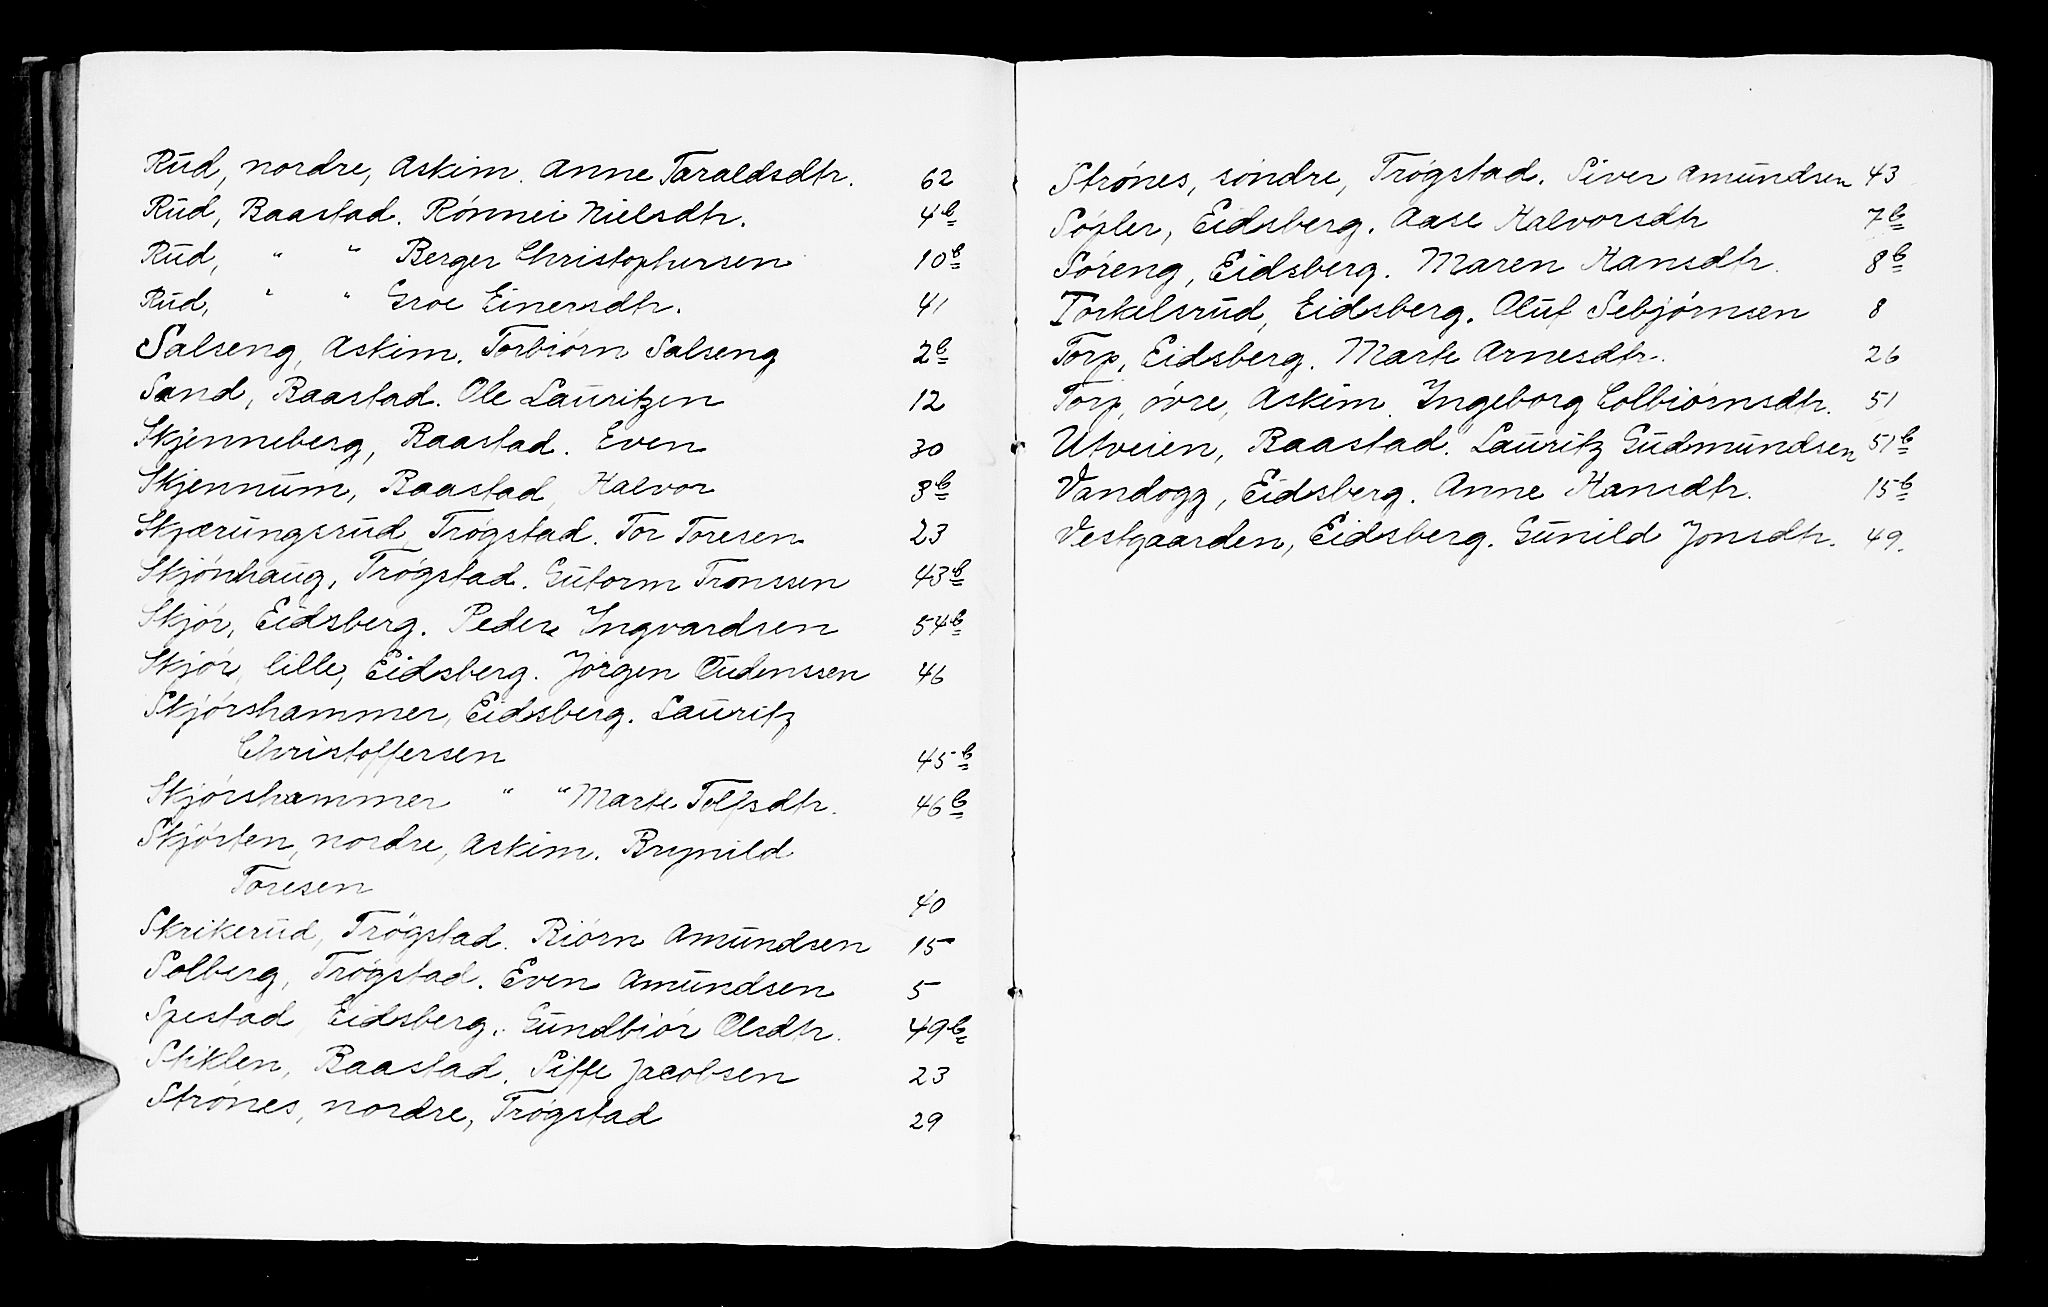 Rud, nordre, Askim. Anne Taraldsdtr. 62
Rud, Baastad. Rönnei Nielsdtr. 4b
Rud, " " Berger Christophersen 10b
Rud, " " Groe Einersdtr. 41
Salseng, Askim. Torbiörn Salseng 2b
Sand, Baastad. Ole Lauritzen 12
Skjenneberg, Baastad. Even 30
Skjennum, Baastad, Halvor 3b
Skjærungsrud, Trögstad. Tor Toresen 23
Skjönhaug, Trögstad. Gutorm Tronssen 43b
Skjör, Eidsberg. Peder Ingvardsen 54b
Skjör, lille, Eidsberg. Jörgen Oudenssen 46
Skjörshammer, Eidsberg. Lauritz
Christoffersen 45b
Skjörshammer " " Marte Tolfsdtr. 46b
Skjörten, nordre, Askim. Brynild
Toresen 40
Skrikerud, Trögstad. Biörn Amundsen 15
Solberg, Trögstad. Even Amundsen 5
Spestad, Eidsberg. Gundbiör Olsdtr. 49b
Stiklen, Baastad. Siffe Jacobsen 23
Strönes, nordre, Trögstad 29
Strönes, söndre, Trögstad. Siver Amundsen 43
Söpler, Eidsberg. Aase Halvorsdtr 7b
Söreng, Eidsberg. Maren Hansdtr. 8b
Torkelsrud, Eidsberg. Oluf Sebjörnsen 8
Torp, Eidsberg. Marte Arnesdtr. 26
Torp, övre, Askim. Ingeborg Colbiörnsdtr. 51
Utveien, Baastad. Lauritz Gudmundsen 51b
Vandogg, Eidsberg. Anne Hansdtr. 15b
Vestgaarden, Eidsberg. Gunild Jonsdtr. 49.